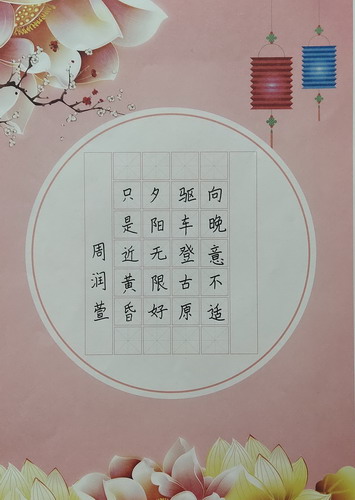 向晚意不适
驱车登古原
夕阳无限好
只是近黄昏
周润萱